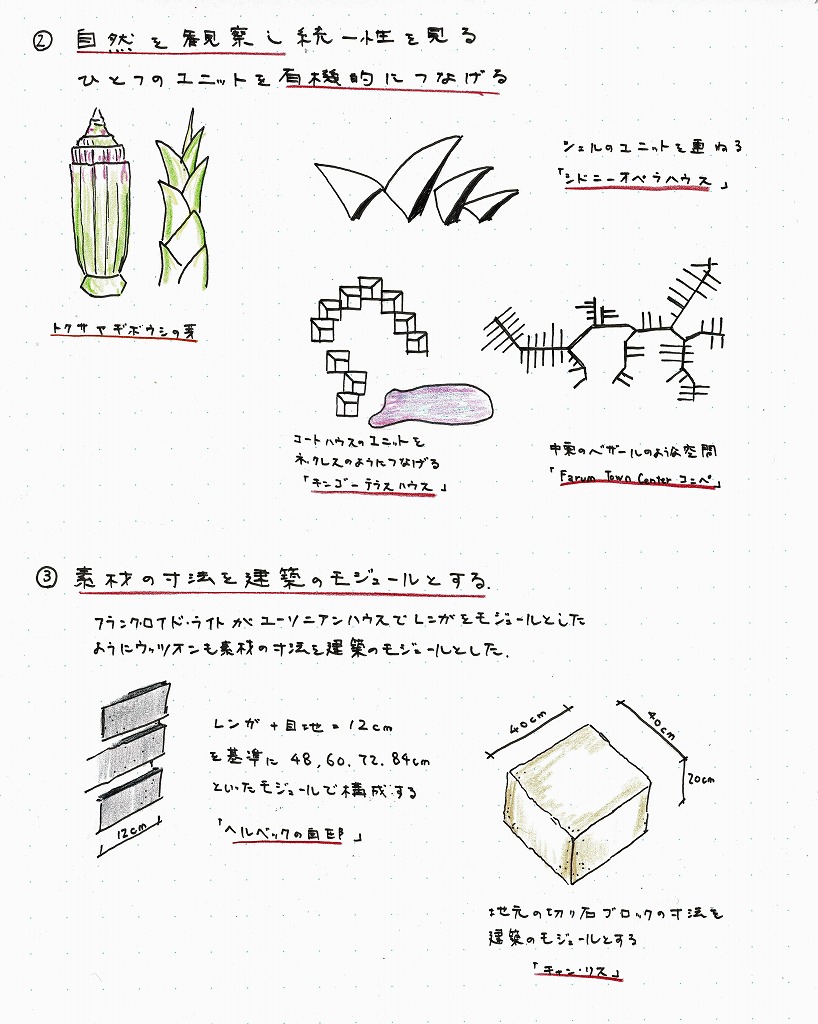 ② 自然を観察し統一性を見る
ひとつのユニットを有機的につなげる
シェルのユニットを重ねる
「シドニーオペラハウス」
トクサヤギボウシの芽
コートハウスのユニットを
ネックレスのようにつなげる
「キンゴーテラスハウス」
中東のベザールのような空間
「Farum Town Center コンペ」
③ 素材の寸法を建築のモジュールとする.
フランク・ロイド・ライトがユーソニアンハウスでレンガをモジュールとした
ようにウッツオンも素材の寸法を建築のモジュールとした.
レンガ + 目地 = 12cm
を基準に 48, 60. 72. 84cm
といったモジュールで構成する
「ヘルベックの自邸」
12cm
40cm
40cm
20cm
地元の切り石ブロックの寸法を
建築のモジュールとする
「キャン・リス」